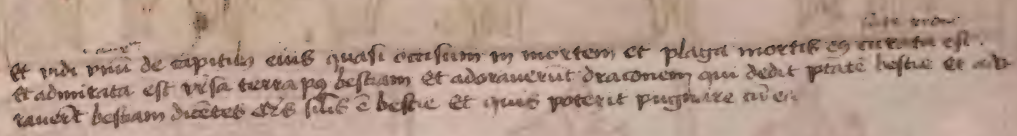 Et vidi vnu de capitib eius quasi occisum in mortem et plaga mortis ei curata est.
Et admirata est vīsa terra p9 bestiam Et adorauerūt draconem qui dedit ptātē bestie Et ado
rauerūt bestiam dicētes silis ē bestie Et quis poterit pugnare cū